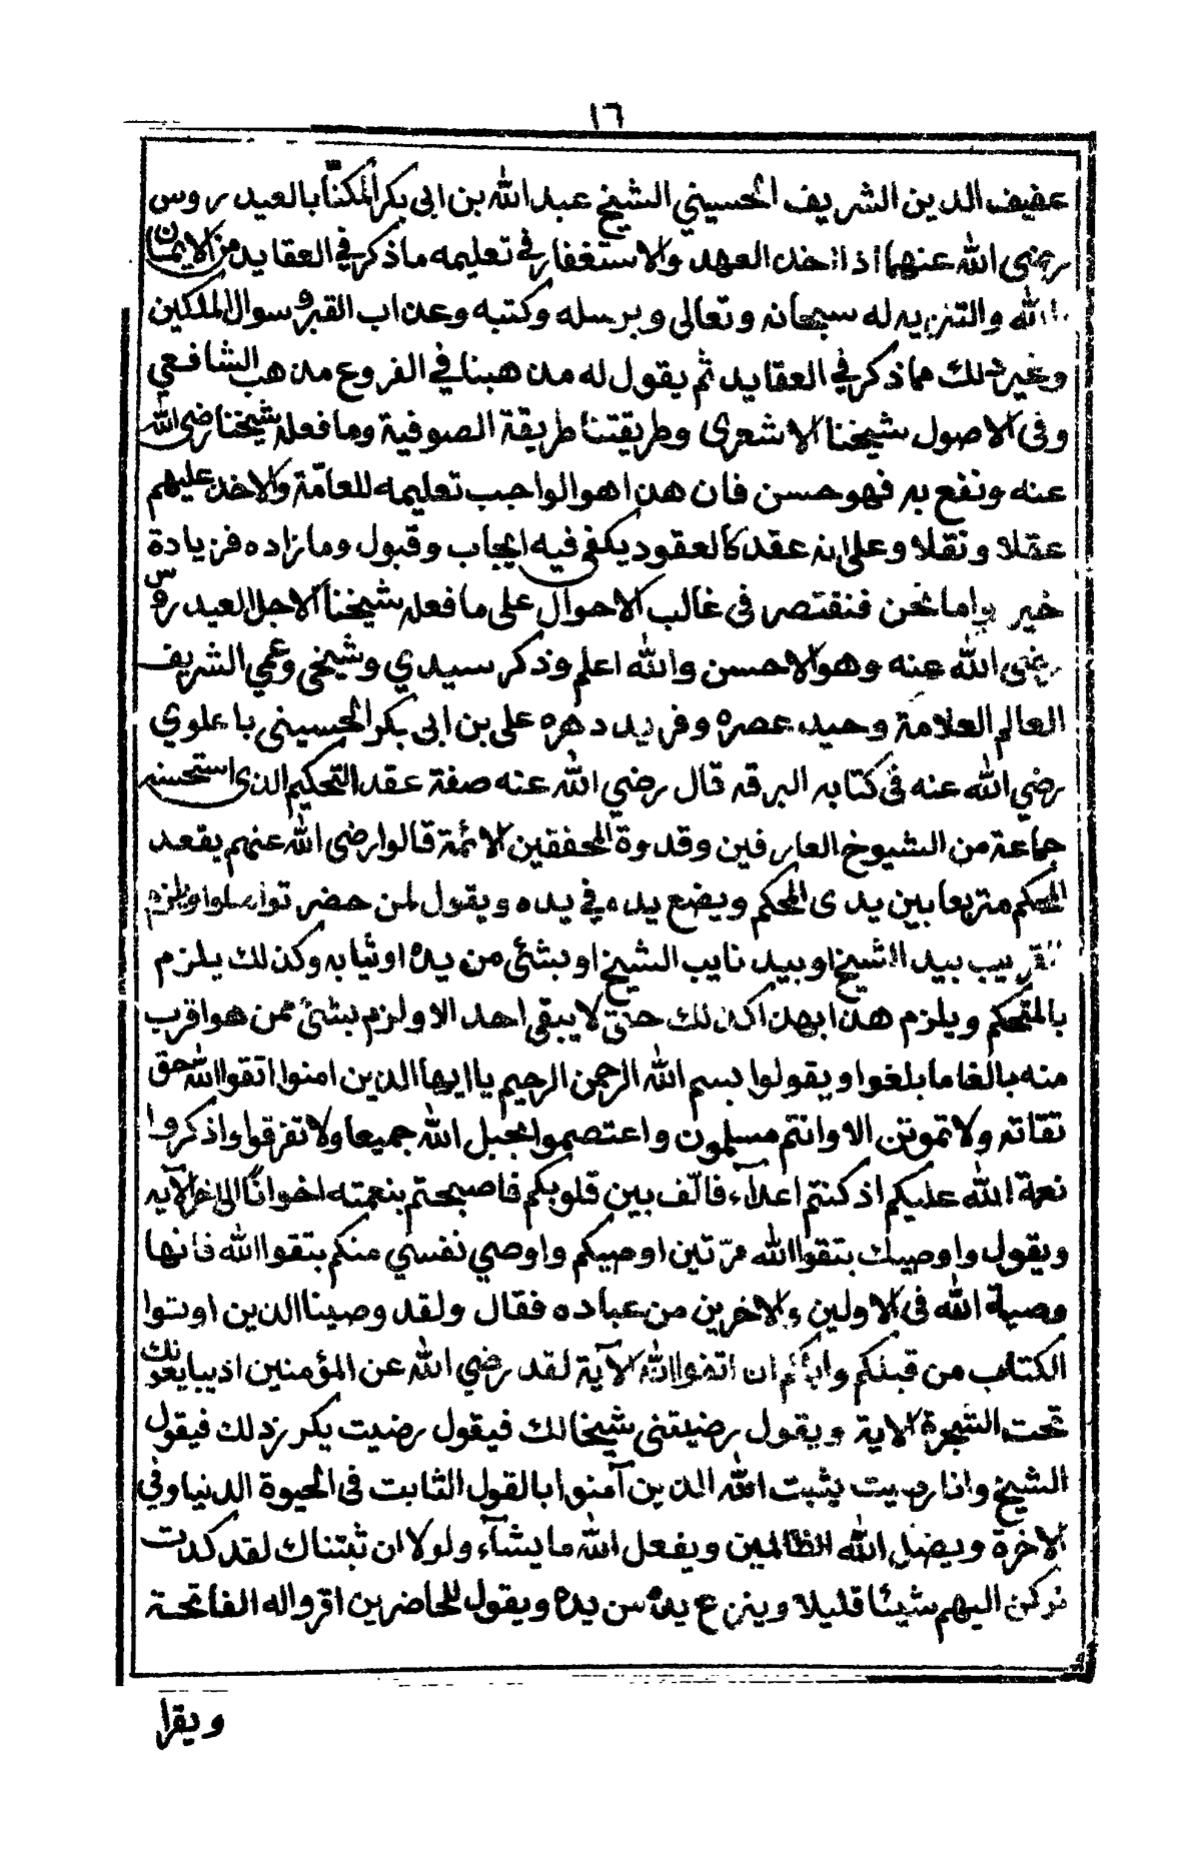 ١٦
عفيف الدين الشريف الحسيني الشيخ عبد الله بن ابى بكر المكنّا بالعيد روس
رضى الله عنهما اذا اخذ العهد والاستغفار في تعليمه ما ذكر في العقايد من الايمان
بالله والتنزيه له سبحانه وتعالى وبرسله وكتبه وعذاب القبر وسوال الملكين
وغير ذلك مما ذكر في العقايد ثم يقول له مذهبنا في الفروع مذهب الشافعي
وفى الاصول شيخنا الاشعرى وطريقتنا طريقة الصوفية وما فعله شيخنا رضى الله
عنه ونفع به فهو حسن فان هذا هو الواجب تعليمه للعامّة والاخذ عليهم
عقلا ونقلا وعلى انه عقد كالعقود يكفى فيه ايجاب وقبول وما زاده فزيادة
خير واما نحن فنقتصر فى غالب الاحوال على ما فعله شيخنا الاجل العيدروس
رضى الله عنه وهو الاحسن والله اعلم وذكر سيدي وشيخى وعمي الشريف
العالم العلامة وحيد عصره وفريد دهره على بن ابى بكر الحسينى باعلوي
رضي الله عنه فى كتابه البرقه قال رضي الله عنه صفة عقد التحكيم الذى استحسنه
جماعة من الشيوخ العارفين وقدوة المحققين الائمة قالوا رضى الله عنهم يقعد
المحكم متربعا بين يدى المحكم ويضع يده في يده ويقول لمن حضر تواصلوا ويلزم
القريب بيد الشيخ او بيد نايب الشيخ او بشئ من يده او ثيابه وكذلك يلزم
بالمتحكم ويلزم هذا بهذا كذلك حتى لا يبقى احد الا ولزم بشئ ممن هو اقرب
منه بالغا ما بلغوا ويقولوا بسم الله الرحمن الرحيم يا ايها الذين امنوا اتقوا الله حق
تقاته ولا تموتن الا وانتم مسلمون واعتصموا بحبل الله جميعا ولا تفرقوا واذكروا
نعمة الله عليكم اذ كنتم اعدآء فالّف بين قلوبكم فاصبحتم بنعمته اخوانًا الى اخر الآيه
ويقول واوصيك بتقوا الله مرّتين اوصيكم واوصي نفسي منكم بتقوا الله فانها
وصية الله فى الاولين والاخرين من عباده فقال ولقد وصينا الذين اوتوا
الكتاب من قبلكم واياكم ان اتقوا الله الآية لقد رضي الله عن المؤمنين اذ يبايعونك
تحت الشجرة الاية ويقول رضيتنى شيخا لك فيقول رضيت يكرر ذلك فيقول
الشيخ وانا رضيت يثبت الله الذين آمنوا بالقول الثابت فى الحيوة الدنيا وفي
الاخرة ويضل الله الظالمين ويفعل الله ما يشآء ولولا ان ثبتناك لقد كدت
تركن اليهم شيئا قليلا وينزع يده من يده ويقول للحاضرين اقرواله الفاتحة
ويقرا